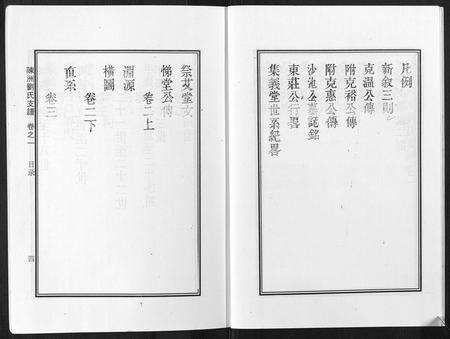 凡例
新敘三則
克溫公傳
附克裕公傳
附克惠公傳
沙池公墓誌銘
東莊公行畧
集義堂世系紀畧
祭文堂文
悌堂公傳
卷二上
淵源
橫圖
卷二下
直系
卷三
陳洲劉氏支譜 卷之一 目录 四